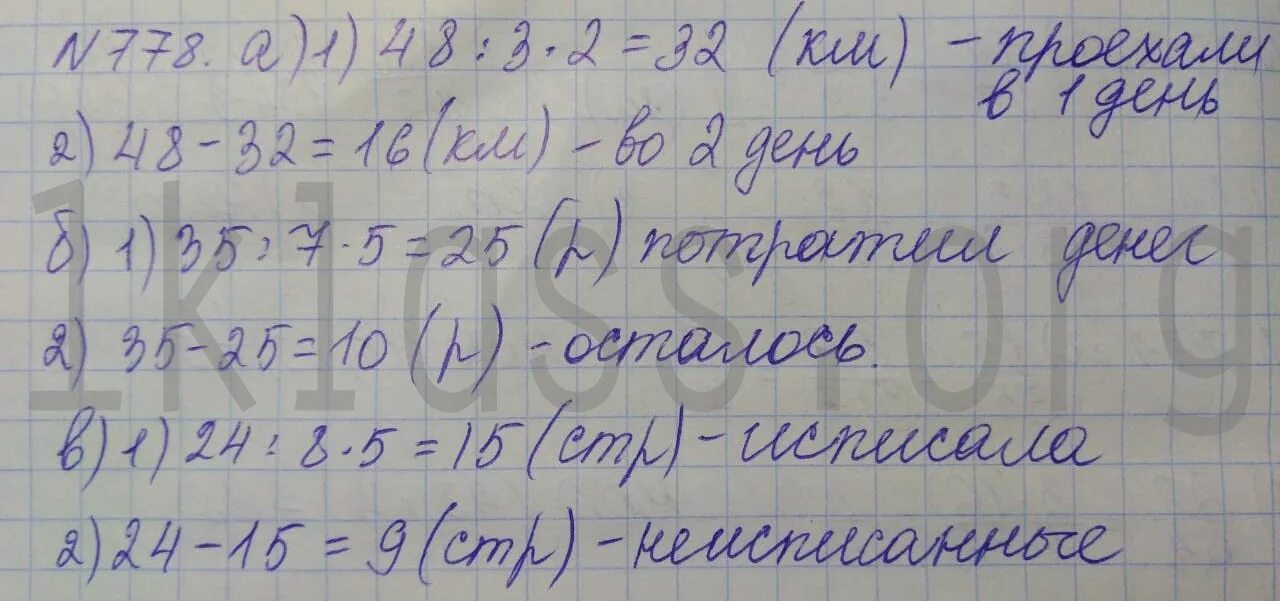 N778. а) 1) 48 : 3 · 2 = 32 (км) – проехали
в 1 день
2) 48 – 32 = 16 (км) – во 2 день
б) 1) 35 : 7 · 5 = 25 (р) потратил денег
2) 35 – 25 = 10 (р) – осталось.
в) 1) 24 : 8 · 5 = 15 (стр) – исписала
2) 24 – 15 = 9 (стр) – неисписанные
1klass.org